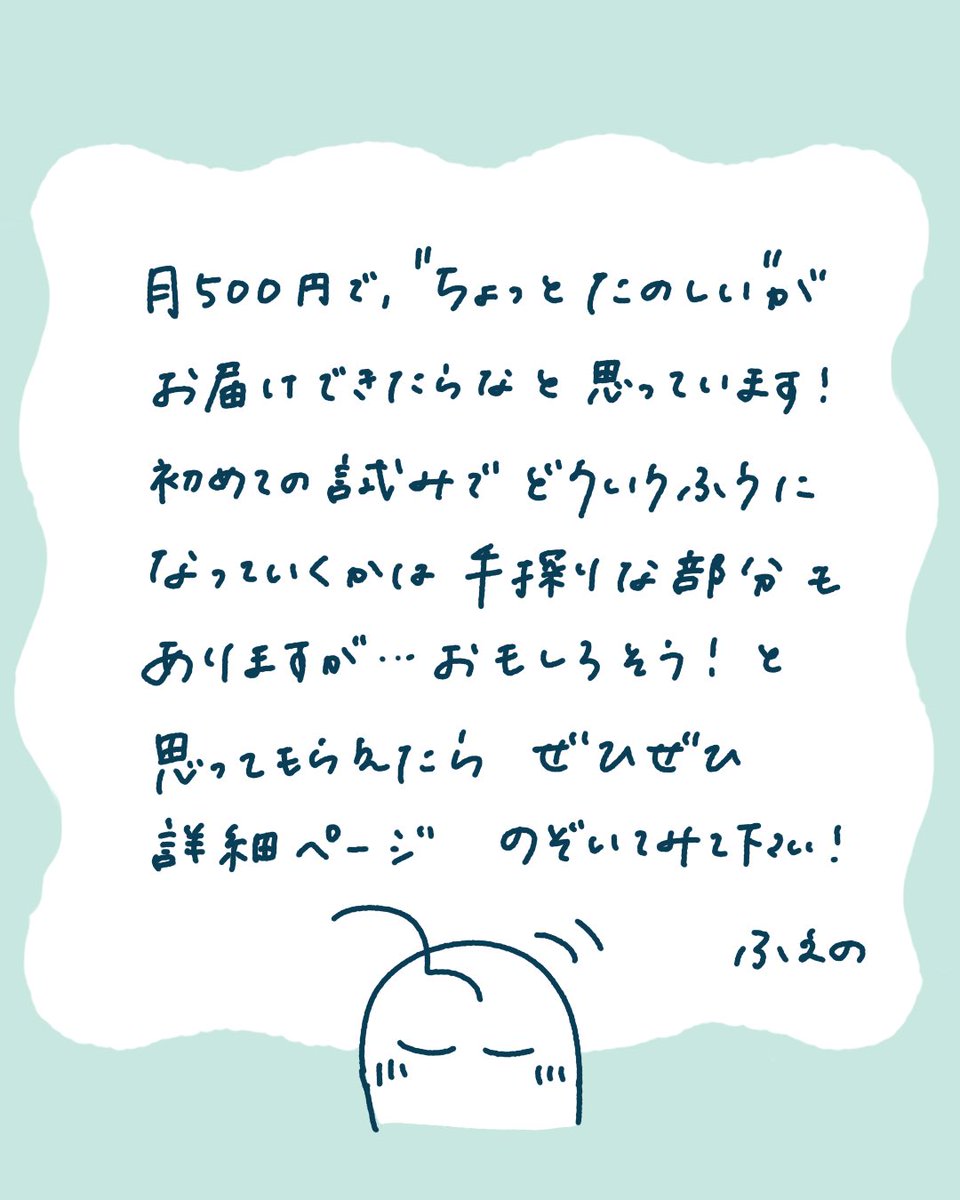 月500円で、"ちょっとたのしい"が
お届けできたらなと思っています!
初めての試みでどういうふうに
なっていくかは手探りな部分も
ありますが…おもしろそう!と
思ってもらえたら ぜひぜひ
詳細ページ のぞいてみて下さい!
ふえの